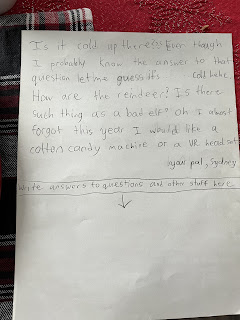 Is it cold up there?? Even though
I probably know the answer to that
question let me guess it's cold hehe.
How are the reindeer? Is there
such thing as a bad elf? Oh I almost
forgot this year I would like a
cotten candy machine or a VR head set
your pal, Sydney
Write answers to questions and other stuff here